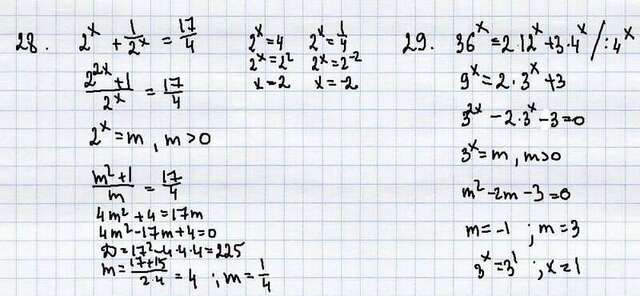 28. 2^x + 1/2^x = 17/4
(2^(2x) + 1)/2^x = 17/4
2^x = m, m > 0
(m² + 1)/m = 17/4
4m² + 4 = 17m
4m² - 17m + 4 = 0
D = 17² - 4·4·4 = 225
m = (17+15)/(2·4) = 4 ; m = 1/4
2^x = 4 2^x = 1/4
2^x = 2² 2^x = 2^(-2)
x = 2 x = -2
29. 36^x = 2·12^x + 3·4^x /:4^x
9^x = 2·3^x + 3
3^(2x) - 2·3^x - 3 = 0
3^x = m, m > 0
m² - 2m - 3 = 0
m = -1 ; m = 3
3^x = 3^1 ; x = 1